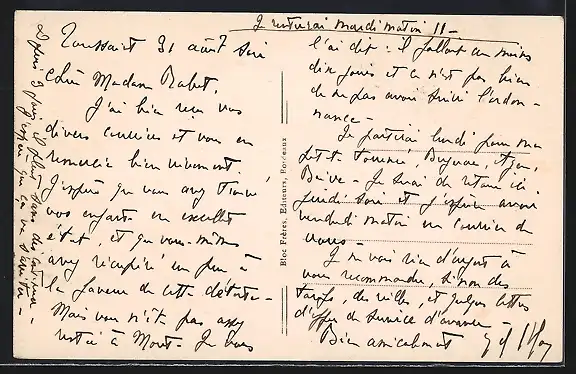 Je rentrerai mardi matin 11 -
Toussaint 31 août soir
Chère Madame Babet,
J'ai bien reçu vos
divers courriers et vous en
remercie bien vivement.
J'espère que vous avez trouvé
vos enfants en excellent
état, et que vous-même
avez récupéré un peu à
la faveur de cette détente -
Mais vous n'êtes pas assez
restée à Mont - Je vous
l'ai dit : il fallait au moins
dix jours et ce n'est pas bien
de ne pas avoir suivi l'ordon-
nance -
Je partirai lundi pour ma
petite tournée, Agen,
Brive - Je serai de retour ici
jeudi soir et j'espère avoir
vendredi matin un courrier de
vous -
Je ne vois rien d'urgent à
vous recommander, si non des
tarifs, des et quelques lettres
d'offres de service d'avance -
Bien amicalement
Depuis 3 jours il pleut dans des
J'espère que ça va s'arrêter -
Bloc Frères, Editeurs, Bordeaux